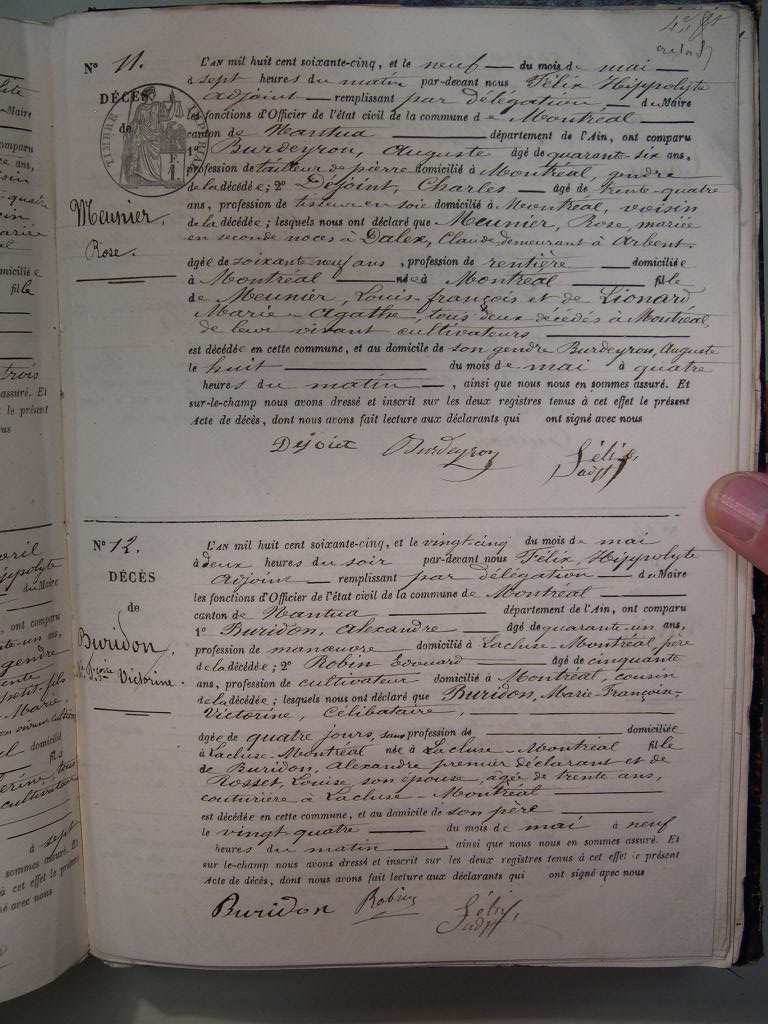 N° 11.
DÉCÈS
de
Meunier,
Rose.
L'AN mil huit cent soixante-cinq, et le neuf du mois de mai
à sept heures du matin par-devant nous Félix Hippolyte
adjoint remplissant par délégation du Maire
les fonctions d'Officier de l'état civil de la commune de Montréal
canton de Nantua département de l'Ain, ont comparu
1° Burdeyron, Auguste âgé de quarante-six ans,
profession de tailleur de pierre domicilié à Montréal, gendre
de la décédée; 2° Déjoint, Charles âgé de trente-quatre
ans, profession de tisseur en soie domicilié à Montréal, voisin
de la décédée; lesquels nous ont déclaré que Meunier, Rose, mariée
en seconde noces à Dalex, Claude demeurant à Arbent,
âgée de soixante neuf ans, profession de rentière domiciliée
à Montréal née à Montréal fille
de Meunier, Louis-françois et de Lionard,
Marie-Agathe, tous deux décédés à Montréal,
de leur vivant cultivateurs
est décédée en cette commune, et au domicile de son gendre Burdeyron, Auguste
le huit du mois de mai à quatre
heures du matin, ainsi que nous nous en sommes assuré. Et
sur-le-champ nous avons dressé et inscrit sur les deux registres tenus à cet effet le présent
Acte de décès, dont nous avons fait lecture aux déclarants qui ont signé avec nous
Dejoint Burdeyron Félix, adjt
N° 12.
DÉCÈS
de
Buridon,
Victorine.
L'AN mil huit cent soixante-cinq, et le vingt-cinq du mois de mai
à deux heures du soir par-devant nous Félix, Hippolyte
adjoint remplissant par délégation du Maire
les fonctions d'Officier de l'état civil de la commune de Montréal
canton de Nantua département de l'Ain, ont comparu
1° Buridon, Alexandre âgé de quarante-un ans,
profession de manœuvre domicilié à Lacluse-Montréal, père
de la décédée; 2° Robin Edouard âgé de cinquante
ans, profession de cultivateur domicilié à Montréal, cousin
de la décédée; lesquels nous ont déclaré que Buridon, Marie-Françoise-
Victorine, Célibataire,
âgée de quatre jours, sans profession de domiciliée
à Lacluse-Montréal née à Lacluse-Montréal fille
de Buridon, Alexandre premier déclarant et de
Rosset, Louise son épouse, âgée de trente ans,
couturière à Lacluse-Montréal
est décédée en cette commune, et au domicile de son père
le vingt quatre du mois de mai à neuf
heures du matin ainsi que nous nous en sommes assuré. Et
sur le-champ nous avons dressé et inscrit sur les deux registres tenus à cet effet le présent
Acte de décès, dont nous avons fait lecture aux déclarants qui ont signé avec nous
Buridon Robin Félix, adjt